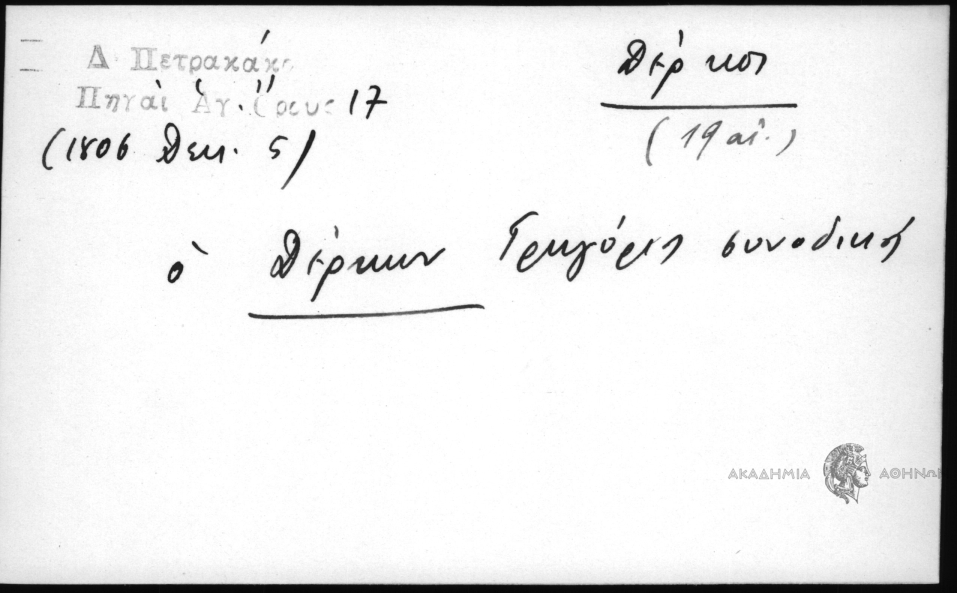 Δ Πετρακάκ
Πηγαὶ Ἁγ. Ὄρους 17
(1806 Δεκ. 5)
Δέρκοι
(19 αἰ.)
ὁ Δέρκων Γρηγόριος συνοδικῶς
ΑΚΑΔΗΜΙΑ ΑΘΗΝΩΝ